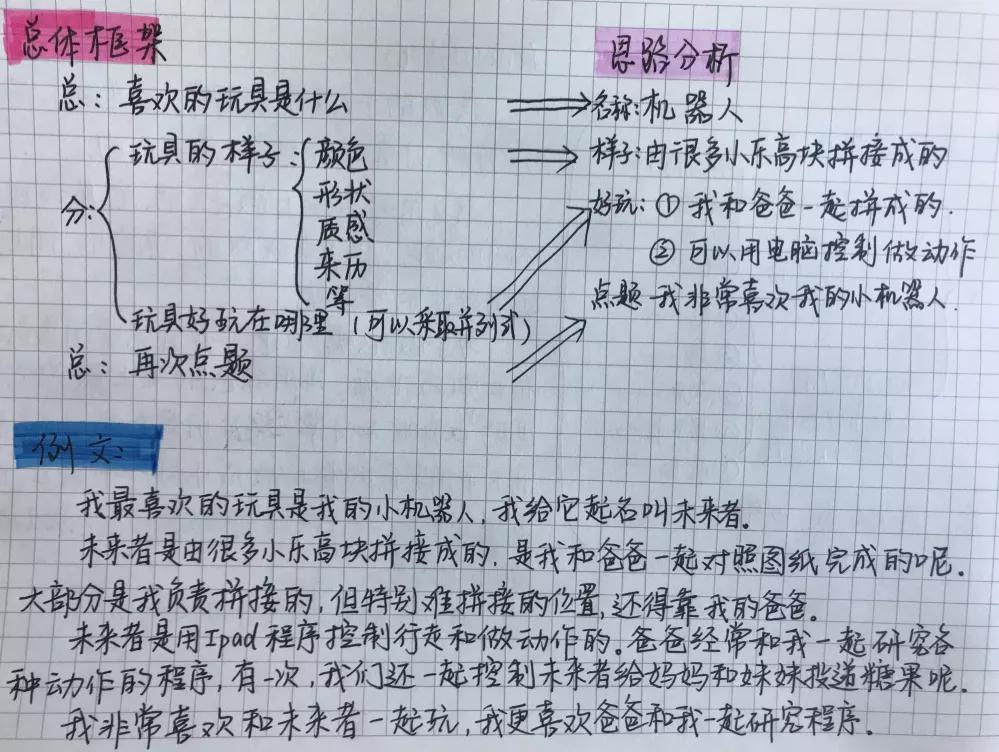 总体框架
总：喜欢的玩具是什么
分：
玩具的样子：
颜色
形状
质感
来历
等
玩具好玩在哪里（可以采取并列式）
总：再次点题
思路分析
名称：机器人
样子：由很多小乐高块拼接成的
好玩：①我和爸爸一起拼成的.
②可以用电脑控制做动作
点题 我非常喜欢我的小机器人.
例文：
我最喜欢的玩具是我的小机器人，我给它起名叫未来者。
未来者是由很多小乐高块拼接成的，是我和爸爸一起对照图纸完成的呢。
大部分是我负责拼接的，但特别难拼接的位置，还得靠我的爸爸。
未来者是用Ipad程序控制行走和做动作的。爸爸经常和我一起研究各
种动作的程序，有一次，我们还一起控制未来者给妈妈和妹妹投递糖果呢。
我非常喜欢和未来者一起玩，我更喜欢爸爸和我一起研究程序。